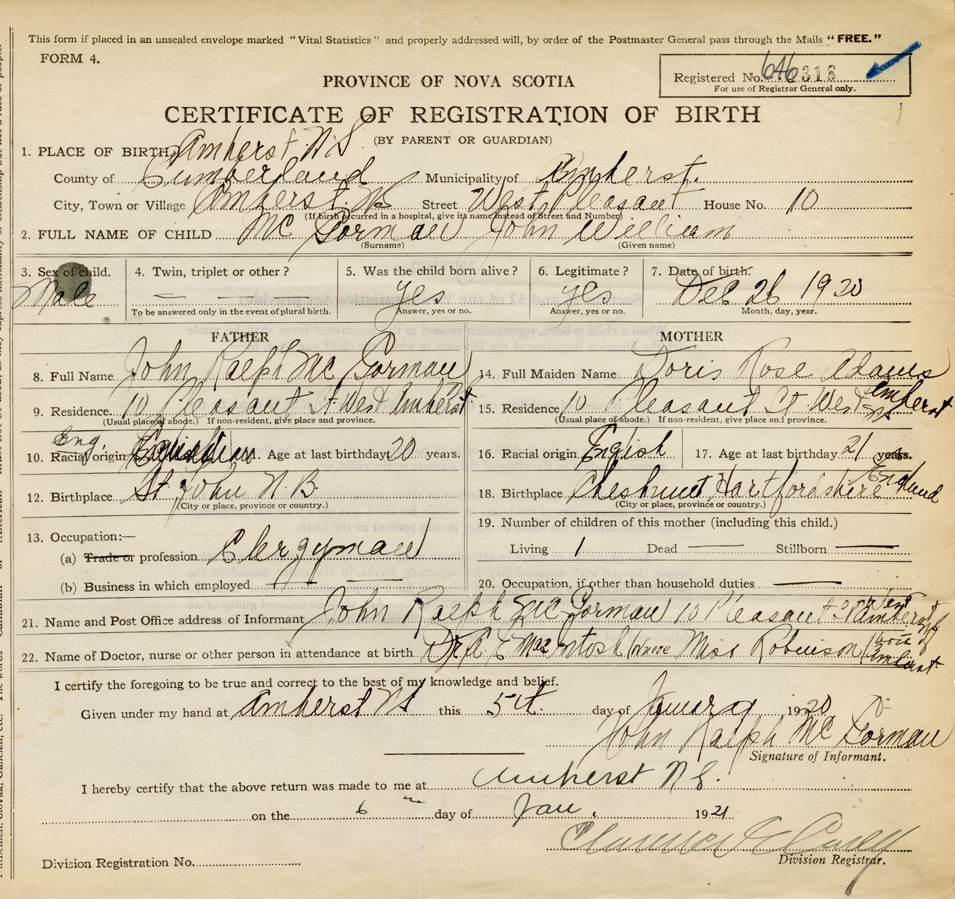 This form if placed in an unsealed envelope marked "Vital Statistics" and properly addressed will, by order of the Postmaster General pass through the Mails "FREE."
FORM 4.
Registered No. 646316
For use of Registrar General only.
PROVINCE OF NOVA SCOTIA
CERTIFICATE OF REGISTRATION OF BIRTH
(BY PARENT OR GUARDIAN)
1. PLACE OF BIRTH, Amherst. N.S.
County of Cumberland Municipality of Amherst.
City, Town or Village Amherst. NS Street West Pleasant House No. 10
(If birth occurred in a hospital, give its name instead of Street and Number)
2. FULL NAME OF CHILD Mc Gorman John William
(Surname) (Given name)
3. Sex of child. 4. Twin, triplet or other? 5. Was the child born alive? 6. Legitimate? 7. Date of birth.
Male — — yes yes Dec 26 1920
To be answered only in the event of plural birth. Answer, yes or no. Answer, yes or no. Month, day, year.
FATHER MOTHER
8. Full Name John Ralph Mc Gorman 14. Full Maiden Name Doris Rose Adams
9. Residence. 10 Pleasant St West Amherst 15. Residence 10 Pleasant St West Amherst NS
(Usual place of abode.) If non-resident, give place and province. (Usual place of abode.) If non-resident, give place and province.
10. Racial origin Eng. Age at last birthday 20 years. 16. Racial origin. English 17. Age at last birthday 21 years.
12. Birthplace St. John N.B 18. Birthplace Cheshunt, Hartfordshire England
(City or place, province or country.) (City or place, province or country.)
13. Occupation:— 19. Number of children of this mother (including this child.)
(a) Trade or profession Clergyman Living 1 Dead — Stillborn —
(b) Business in which employed — 20. Occupation, if other than household duties —
21. Name and Post Office address of Informant John Ralph McGorman 10 Pleasant St West Amherst NS
22. Name of Doctor, nurse or other person in attendance at birth Dr. C E MacIntosh (nurse Miss Robinson) both Amherst
I certify the foregoing to be true and correct to the best of my knowledge and belief.
Given under my hand at Amherst NS this 5th day of January 1920
John Ralph McGorman
Signature of Informant.
I hereby certify that the above return was made to me at Amherst N S.
on the 6 day of Jan. 1921
Clarence Casey
Division Registration No. Division Registrar.